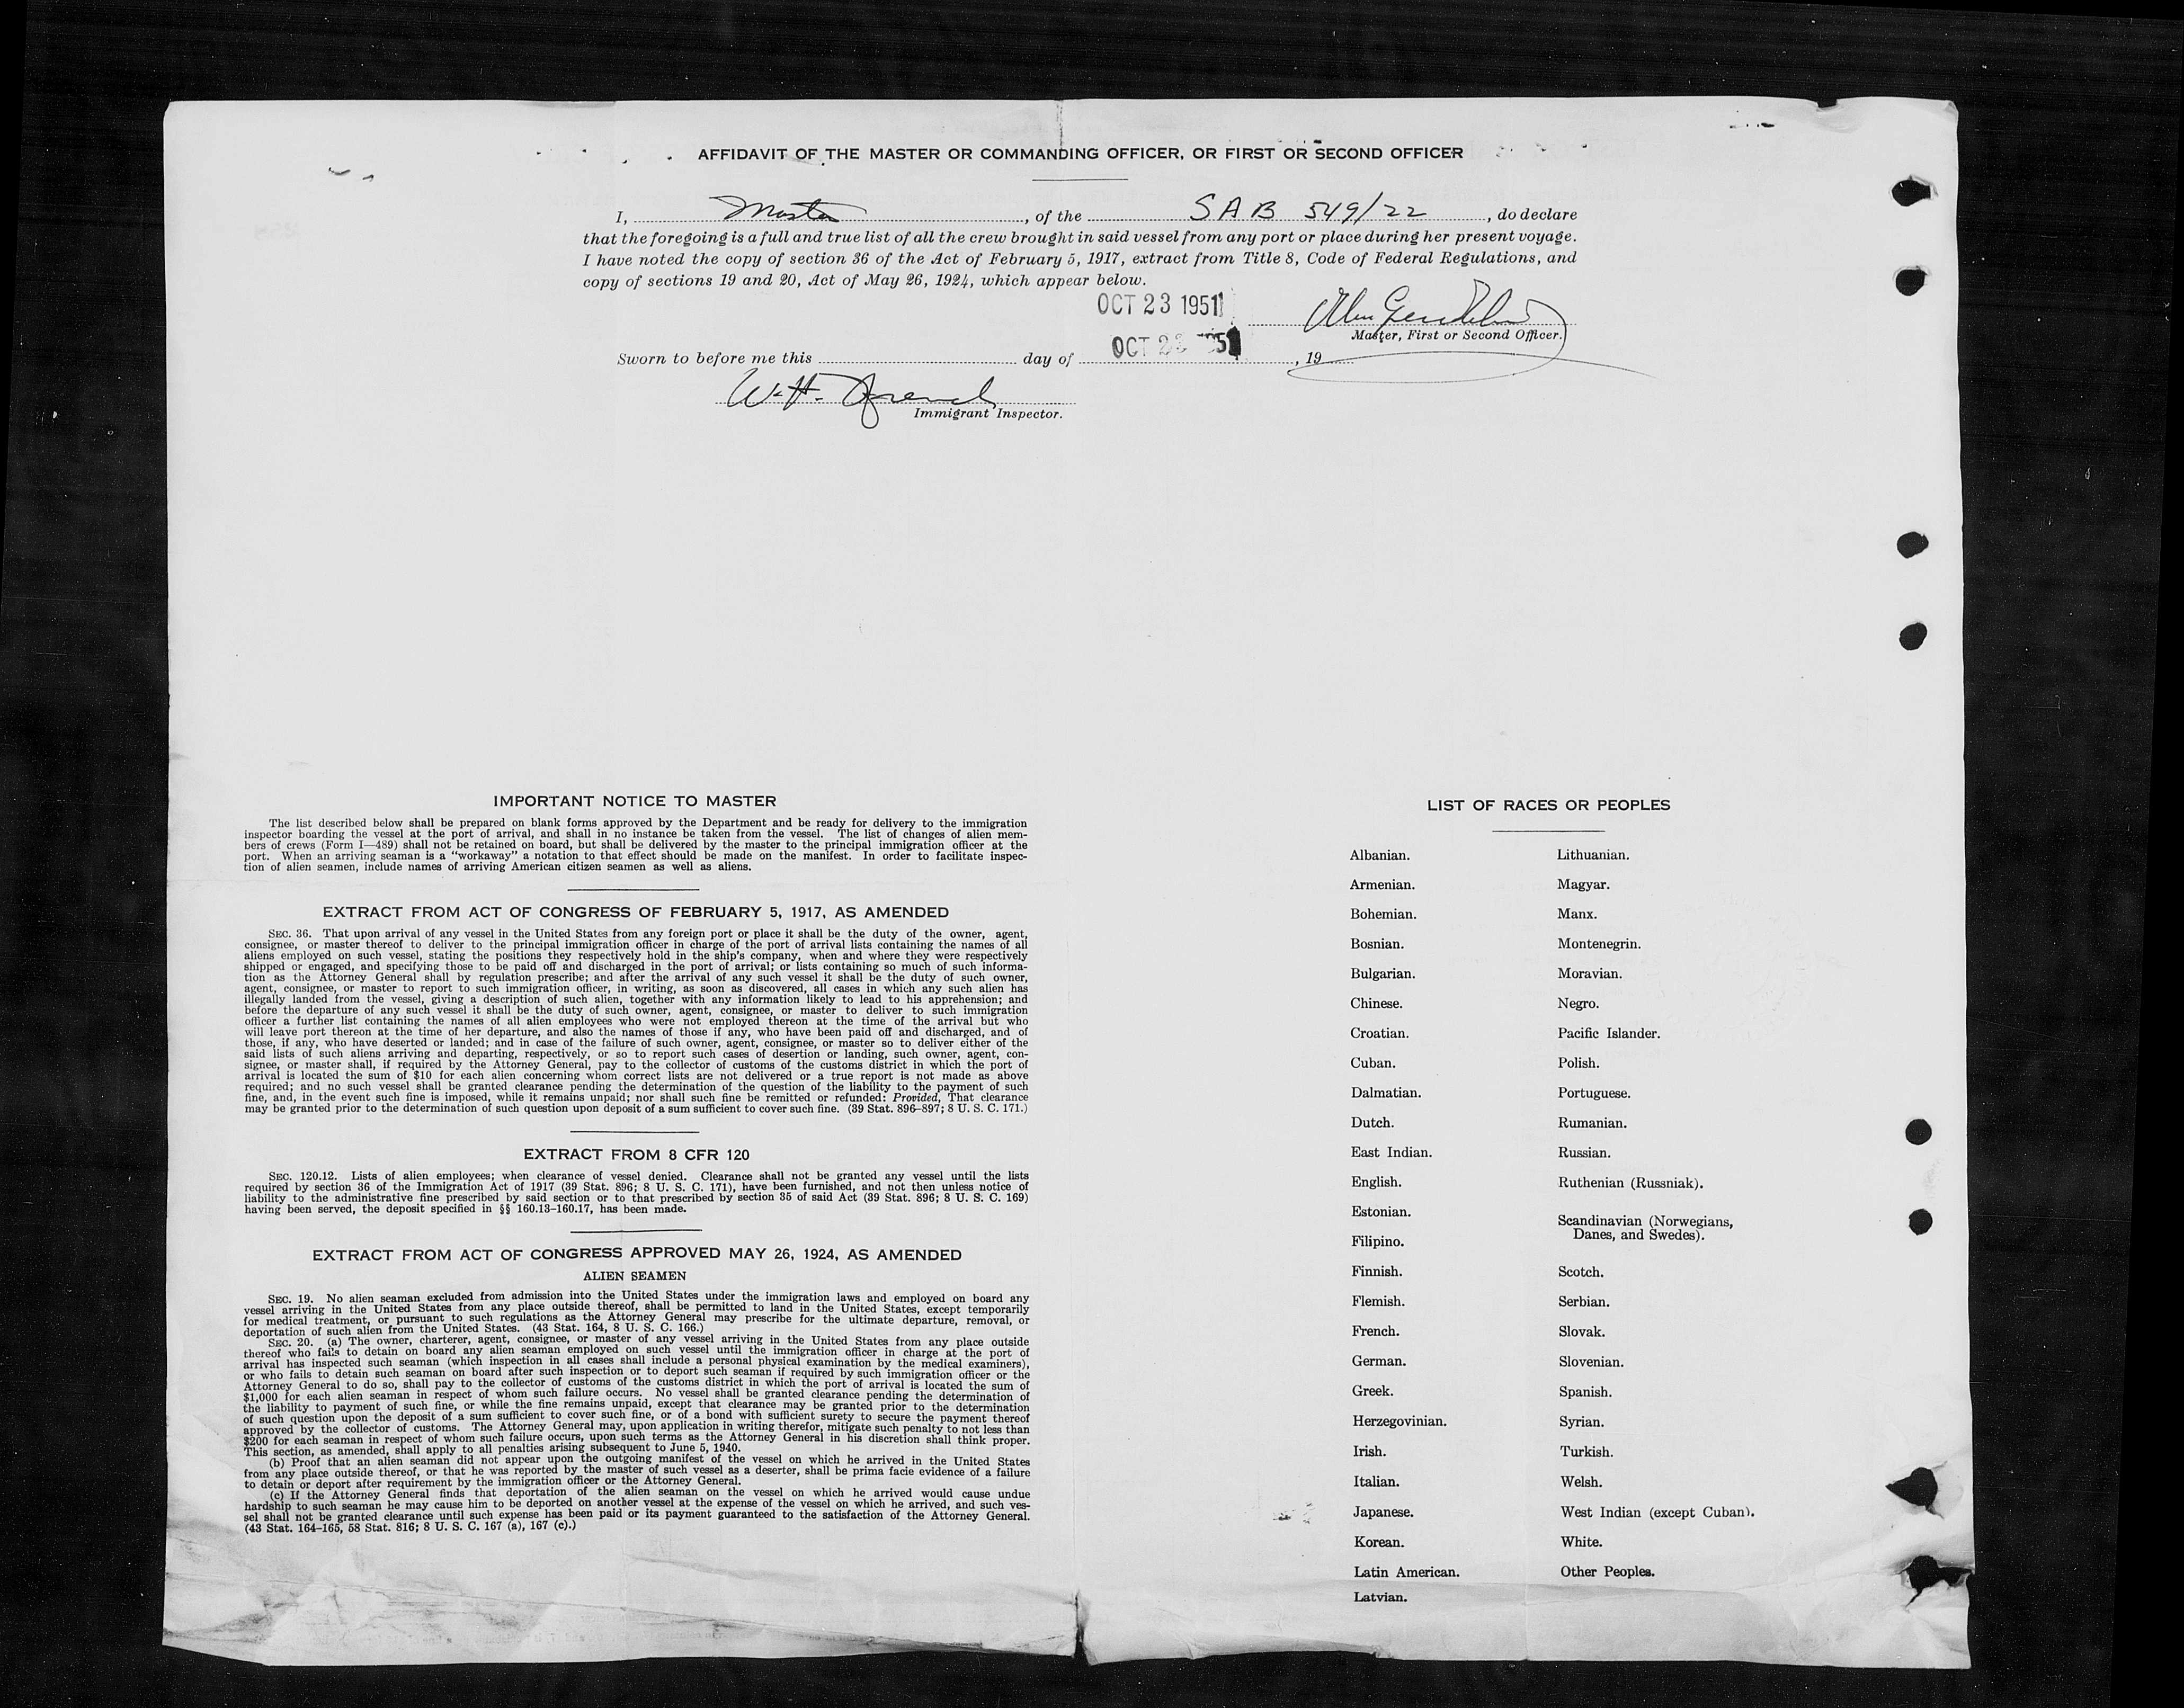 AFFIDAVIT OF THE MASTER OR COMMANDING OFFICER, OR FIRST OR SECOND OFFICER
I, Master, of the SAB 549/22, do declare
that the foregoing is a full and true list of all the crew brought in said vessel from any port or place during her present voyage.
I have noted the copy of section 36 of the Act of February 5, 1917, extract from Title 8, Code of Federal Regulations, and
copy of sections 19 and 20, Act of May 26, 1924, which appear below.
OCT 23 1951
Master, First or Second Officer.
OCT 23
Sworn to before me this day of , 19
W. H.
Immigrant Inspector.
IMPORTANT NOTICE TO MASTER
The list described below shall be prepared on blank forms approved by the Department and be ready for delivery to the immigration
inspector boarding the vessel at the port of arrival, and shall in no instance be taken from the vessel. The list of changes of alien mem-
bers of crews (Form I—489) shall not be retained on board, but shall be delivered by the master to the principal immigration officer at the
port. When an arriving seaman is a "workaway" a notation to that effect should be made on the manifest. In order to facilitate inspec-
tion of alien seamen, include names of arriving American citizen seamen as well as aliens.
EXTRACT FROM ACT OF CONGRESS OF FEBRUARY 5, 1917, AS AMENDED
SEC. 36. That upon arrival of any vessel in the United States from any foreign port or place it shall be the duty of the owner, agent,
consignee, or master thereof to deliver to the principal immigration officer in charge of the port of arrival lists containing the names of all
aliens employed on such vessel, stating the positions they respectively hold in the ship's company, when and where they were respectively
shipped or engaged, and specifying those to be paid off and discharged in the port of arrival; or lists containing so much of such informa-
tion as the Attorney General shall by regulation prescribe; and after the arrival of any such vessel it shall be the duty of such owner,
agent, consignee, or master to report to such immigration officer, in writing, as soon as discovered, all cases in which any such alien has
illegally landed from the vessel, giving a description of such alien, together with any information likely to lead to his apprehension; and
before the departure of any such vessel it shall be the duty of such owner, agent, consignee, or master to deliver to such immigration
officer a further list containing the names of all alien employees who were not employed thereon at the time of the arrival but who
will leave port thereon at the time of her departure, and also the names of those if any, who have been paid off and discharged, and of
those, if any, who have deserted or landed; and in case of the failure of such owner, agent, consignee, or master so to deliver either of the
said lists of such aliens arriving and departing, respectively, or so to report such cases of desertion or landing, such owner, agent, con-
signee, or master shall, if required by the Attorney General, pay to the collector of customs of the customs district in which the port of
arrival is located the sum of $10 for each alien concerning whom correct lists are not delivered or a true report is not made as above
required; and no such vessel shall be granted clearance pending the determination of the question of the liability to the payment of such
fine, and, in the event such fine is imposed, while it remains unpaid; nor shall such fine be remitted or refunded: Provided, That clearance
may be granted prior to the determination of such question upon deposit of a sum sufficient to cover such fine. (39 Stat. 896-897; 8 U. S. C. 171.)
EXTRACT FROM 8 CFR 120
SEC. 120.12. Lists of alien employees; when clearance of vessel denied. Clearance shall not be granted any vessel until the lists
required by section 36 of the Immigration Act of 1917 (39 Stat. 896; 8 U. S. C. 171), have been furnished, and not then unless notice of
liability to the administrative fine prescribed by said section or to that prescribed by section 35 of said Act (39 Stat. 896; 8 U. S. C. 169)
having been served, the deposit specified in §§ 160.13-160.17, has been made.
EXTRACT FROM ACT OF CONGRESS APPROVED MAY 26, 1924, AS AMENDED
ALIEN SEAMEN
SEC. 19. No alien seaman excluded from admission into the United States under the immigration laws and employed on board any
vessel arriving in the United States from any place outside thereof, shall be permitted to land in the United States, except temporarily
for medical treatment, or pursuant to such regulations as the Attorney General may prescribe for the ultimate departure, removal, or
deportation of such alien from the United States. (43 Stat. 164, 8 U. S. C. 166.)
SEC. 20. (a) The owner, charterer, agent, consignee, or master of any vessel arriving in the United States from any place outside
thereof who fails to detain on board any alien seaman employed on such vessel until the immigration officer in charge at the port of
arrival has inspected such seaman (which inspection in all cases shall include a personal physical examination by the medical examiners),
or who fails to detain such seaman on board after such inspection or to deport such seaman if required by such immigration officer or the
Attorney General to do so, shall pay to the collector of customs of the customs district in which the port of arrival is located the sum of
$1,000 for each alien seaman in respect of whom such failure occurs. No vessel shall be granted clearance pending the determination of
the liability to payment of such fine, or while the fine remains unpaid, except that clearance may be granted prior to the determination
of such question upon the deposit of a sum sufficient to cover such fine, or of a bond with sufficient surety to secure the payment thereof
approved by the collector of customs. The Attorney General may, upon application in writing therefor, mitigate such penalty to not less than
$200 for each seaman in respect of whom such failure occurs, upon such terms as the Attorney General in his discretion shall think proper.
This section, as amended, shall apply to all penalties arising subsequent to June 5, 1940.
(b) Proof that an alien seaman did not appear upon the outgoing manifest of the vessel on which he arrived in the United States
from any place outside thereof, or that he was reported by the master of such vessel as a deserter, shall be prima facie evidence of a failure
to detain or deport after requirement by the immigration officer or the Attorney General.
(c) If the Attorney General finds that deportation of the alien seaman on the vessel on which he arrived would cause undue
hardship to such seaman he may cause him to be deported on another vessel at the expense of the vessel on which he arrived, and such ves-
sel shall not be granted clearance until such expense has been paid or its payment guaranteed to the satisfaction of the Attorney General.
(43 Stat. 164-165, 58 Stat. 816; 8 U. S. C. 167 (a), 167 (c).)
LIST OF RACES OR PEOPLES
Albanian.
Armenian.
Bohemian.
Bosnian.
Bulgarian.
Chinese.
Croatian.
Cuban.
Dalmatian.
Dutch.
East Indian.
English.
Estonian.
Filipino.
Finnish.
Flemish.
French.
German.
Greek.
Herzegovinian.
Irish.
Italian.
Japanese.
Korean.
Latin American.
Latvian.
Lithuanian.
Magyar.
Manx.
Montenegrin.
Moravian.
Negro.
Pacific Islander.
Polish.
Portuguese.
Rumanian.
Russian.
Ruthenian (Russniak).
Scandinavian (Norwegians,
Danes, and Swedes).
Scotch.
Serbian.
Slovak.
Slovenian.
Spanish.
Syrian.
Turkish.
Welsh.
West Indian (except Cuban).
White.
Other Peoples.